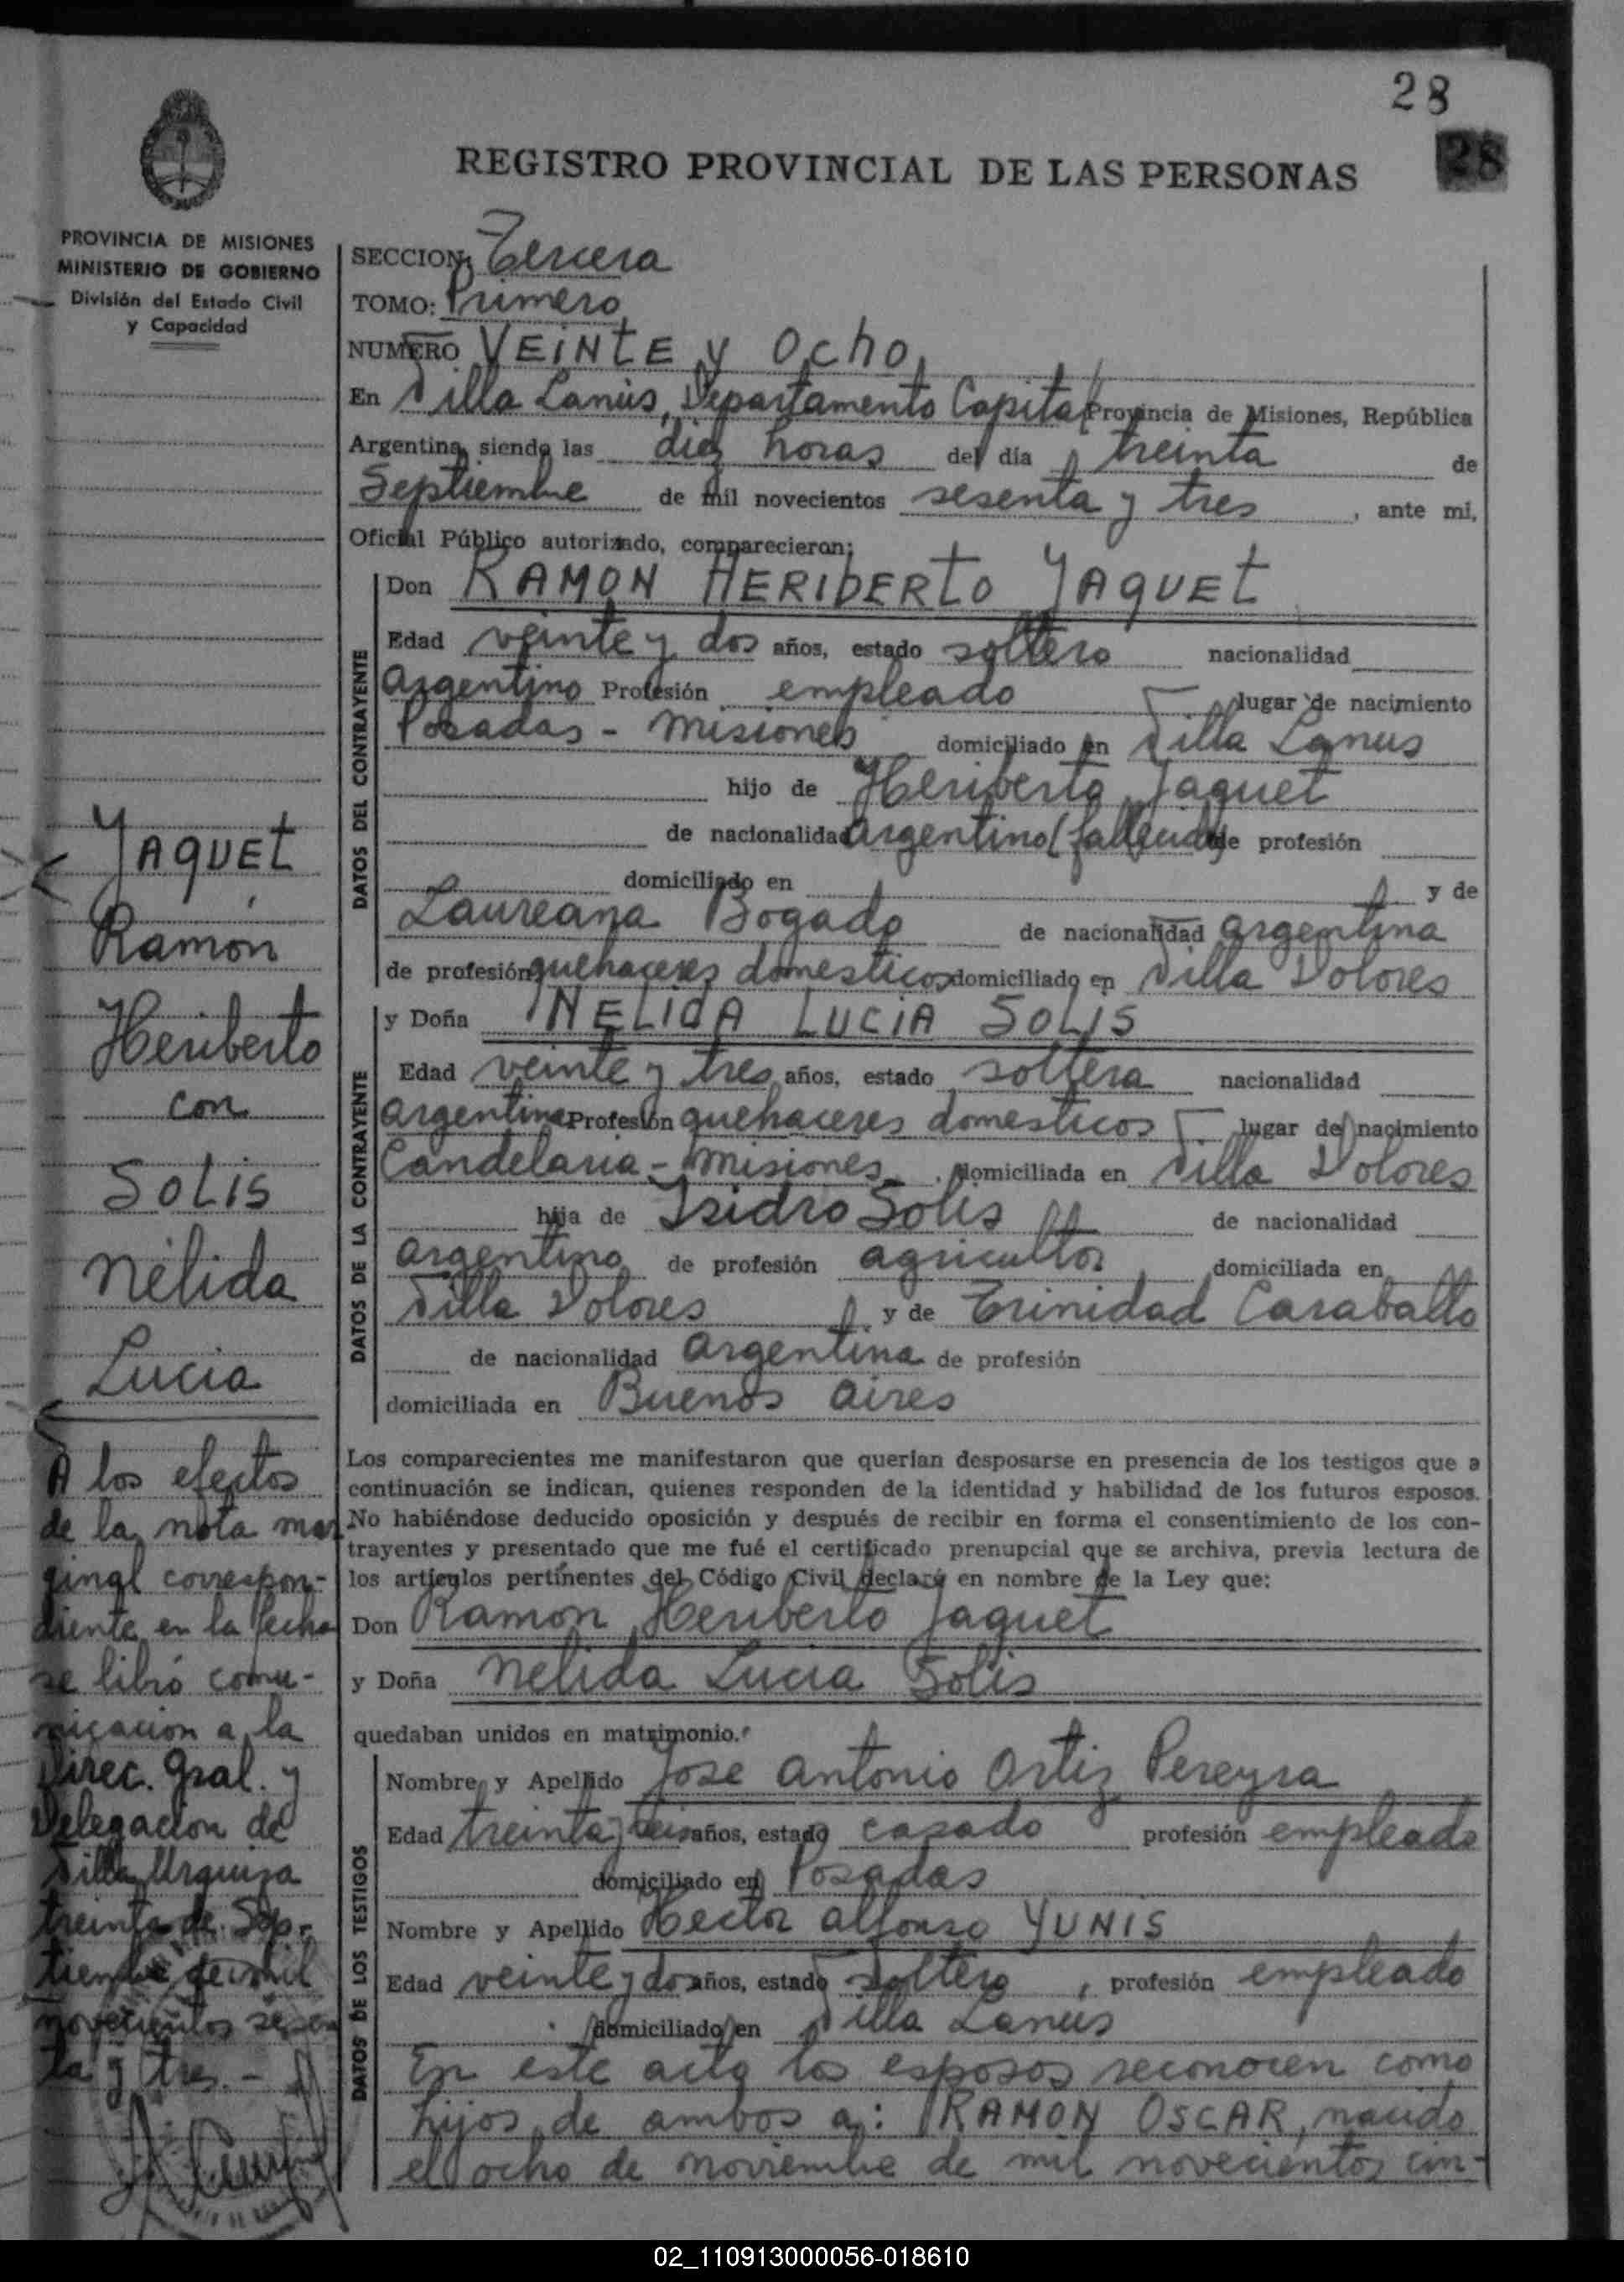 28
28
REGISTRO PROVINCIAL DE LAS PERSONAS
PROVINCIA DE MISIONES
MINISTERIO DE GOBIERNO
División del Estado Civil
y Capacidad
SECCION: Tercera
TOMO: Primero
NUMERO VEINTE y Ocho
En Villa Lanús, Departamento Capital Provincia de Misiones, República
Argentina, siendo las diez horas del día treinta de
Septiembre de mil novecientos sesenta y tres, ante mi,
Oficial Público autorizado, comparecieron;
DATOS DEL CONTRAYENTE
Don RAMON HERIBERTO JAQUET
Edad veinte y dos años, estado soltero nacionalidad
argentino Profesión empleado lugar de nacimiento
Posadas - Misiones domiciliado en Villa Lanus
hijo de Heriberto Jaquet
de nacionalidad argentino (fallecido) de profesión
domiciliado en y de
Laureana Bogado de nacionalidad argentina
de profesión quehaceres domesticos domiciliado en Villa Dolores
DATOS DE LA CONTRAYENTE
y Doña NELIDA LUCIA SOLIS
Edad veinte y tres años, estado soltera nacionalidad
argentina Profesión quehaceres domesticos lugar de nacimiento
Candelaria - Misiones, domiciliada en Villa Dolores
hija de Isidro Solis de nacionalidad
argentino de profesión agricultor domiciliada en
Villa Dolores y de Trinidad Caraballo
de nacionalidad argentina de profesión
domiciliada en Buenos aires
Los comparecientes me manifestaron que querían desposarse en presencia de los testigos que a
continuación se indican, quienes responden de la identidad y habilidad de los futuros esposos.
No habiéndose deducido oposición y después de recibir en forma el consentimiento de los con-
trayentes y presentado que me fué el certificado prenupcial que se archiva, previa lectura de
los artículos pertinentes del Código Civil declaré en nombre de la Ley que:
Don Ramon Heriberto Jaquet
y Doña Nelida Lucia Solis
quedaban unidos en matrimonio.
DATOS DE LOS TESTIGOS
Nombre y Apellido Jose Antonio Ortiz Pereyra
Edad treinta y años, estado casado profesión empleado
domiciliado en Posadas
Nombre y Apellido Hector alfonso YUNIS
Edad veinte y dos años, estado soltero, profesión empleado
domiciliado en Villa Lanus
En este acto los esposos reconocen como
hijos de ambos a: RAMON OSCAR, nacido
el ocho de noviembre de mil novecientos cin-
JAQUET
Ramón
Heriberto
con
SOLIS
Nélida
Lucia
A los efectos
de la nota mar
ginal correspon-
diente en la fecha
se libró comu-
nicacion a la
Direc. Gral. y
Delegacion de
Villa Urquiza
treinta de Sep-
tiembre de mil
novecientos sesen
ta y tres.-
02_110913000056-018610